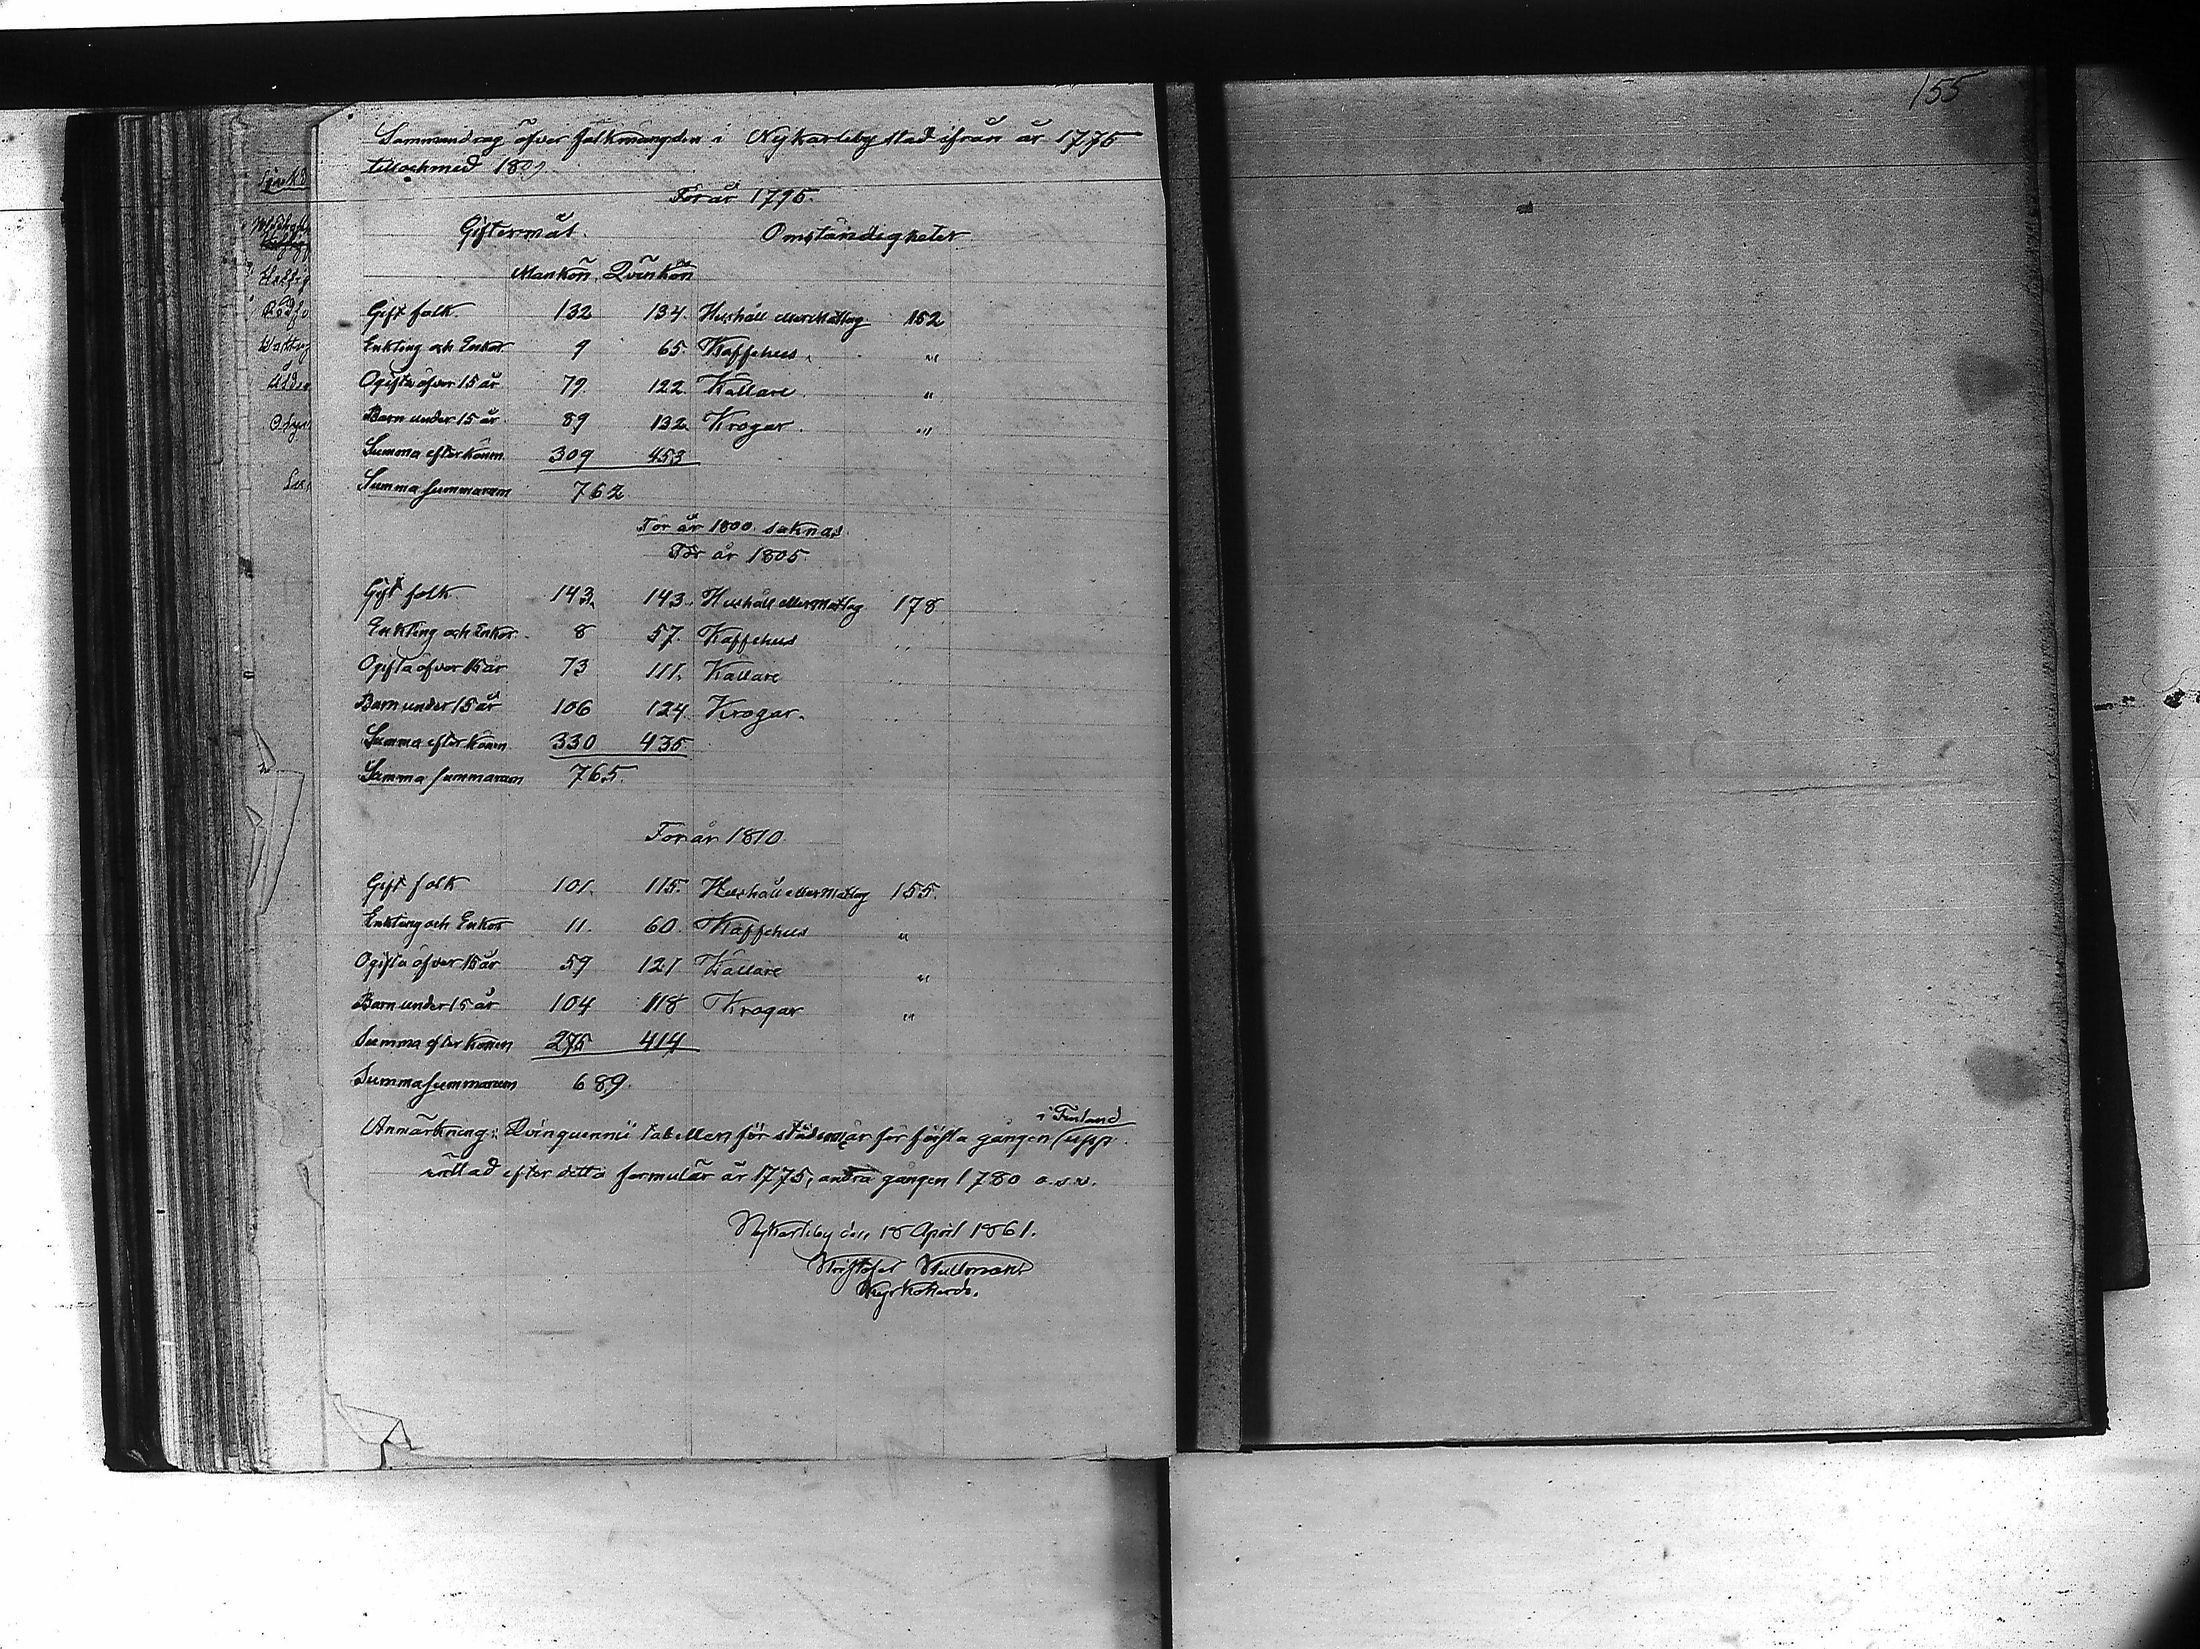 155
Sammandrag öfver folkmängden i Nykarleby stad ifrån år 1775
till och med 1809
För år 1795.
Giftermål. Omständigheter
Mankön. Qvinkön
Gift folk. 132 134. Hushåll eller Matlag 152
Enkling och Enkor. 9 65. Kaffehus. "
Ogifta öfver 15 år 79. 122. Källare. "
Barn under 15 år. 89 132. Krogar. "
Summa efter könen. 309 453
Summa summarum 762
För år 1800. saknas.
För år 1805.
Gift folk. 143. 143. Hushåll eller Matlag 178
Enkling och Enkor. 8 57. Kaffehus "
Ogifta öfver 15 år 73 111. Källare "
Barn under 15 år 106 124. Krogar. "
Summa efter könen 330 435
Summa summarum 765.
För år 1810.
Gift folk 101. 115. Hushåll eller Matlag 155.
Enkling och Enkor 11. 60. Kaffehus "
Ogifta öfver 15 år 59 121 Källare "
Barn under 15 år 104 118 Krogar "
Summa efter könen 275 414
Summa summarum 689.
i Finland
Anmärkning: Qvinquennii tabellen för städerna är för första gången upp-
rättad efter detta formulär år 1775, andra gången 1780 o.s.v.
Nykarleby den 18 April 1861.